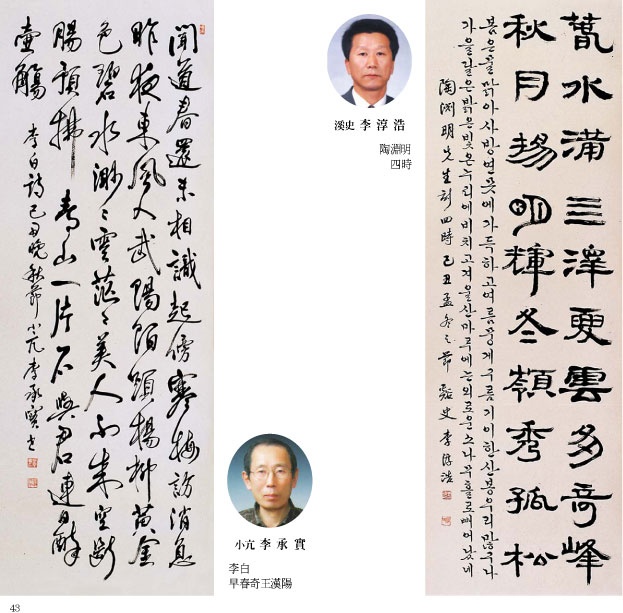 聞道春還未相識起傍寒梅訪消息
昨夜東風入武陽陌頭楊柳黃金
色碧水渺々雲茫々美人不來空斷
腸預拂靑山一片石與君連日醉
壺觴 李白詩 己丑晩秋節 小亢 李承實書
溪史 李淳浩
陶淵明
四時
小亢 李承實
李白
早春奇王漢陽
萅水滿亖澤夏雲多奇峰
秋月揚明輝冬嶺秀孤松
봄은물맑아사방연못에가득하고여름뭉게구름기이한산봉우리많으나
가을달은밝은빛온누리에비치고겨울산마루에는외로운소나무홀로빼어났네
陶渊明先生詩四時 己丑孟冬之節 谿史 李淳浩
43